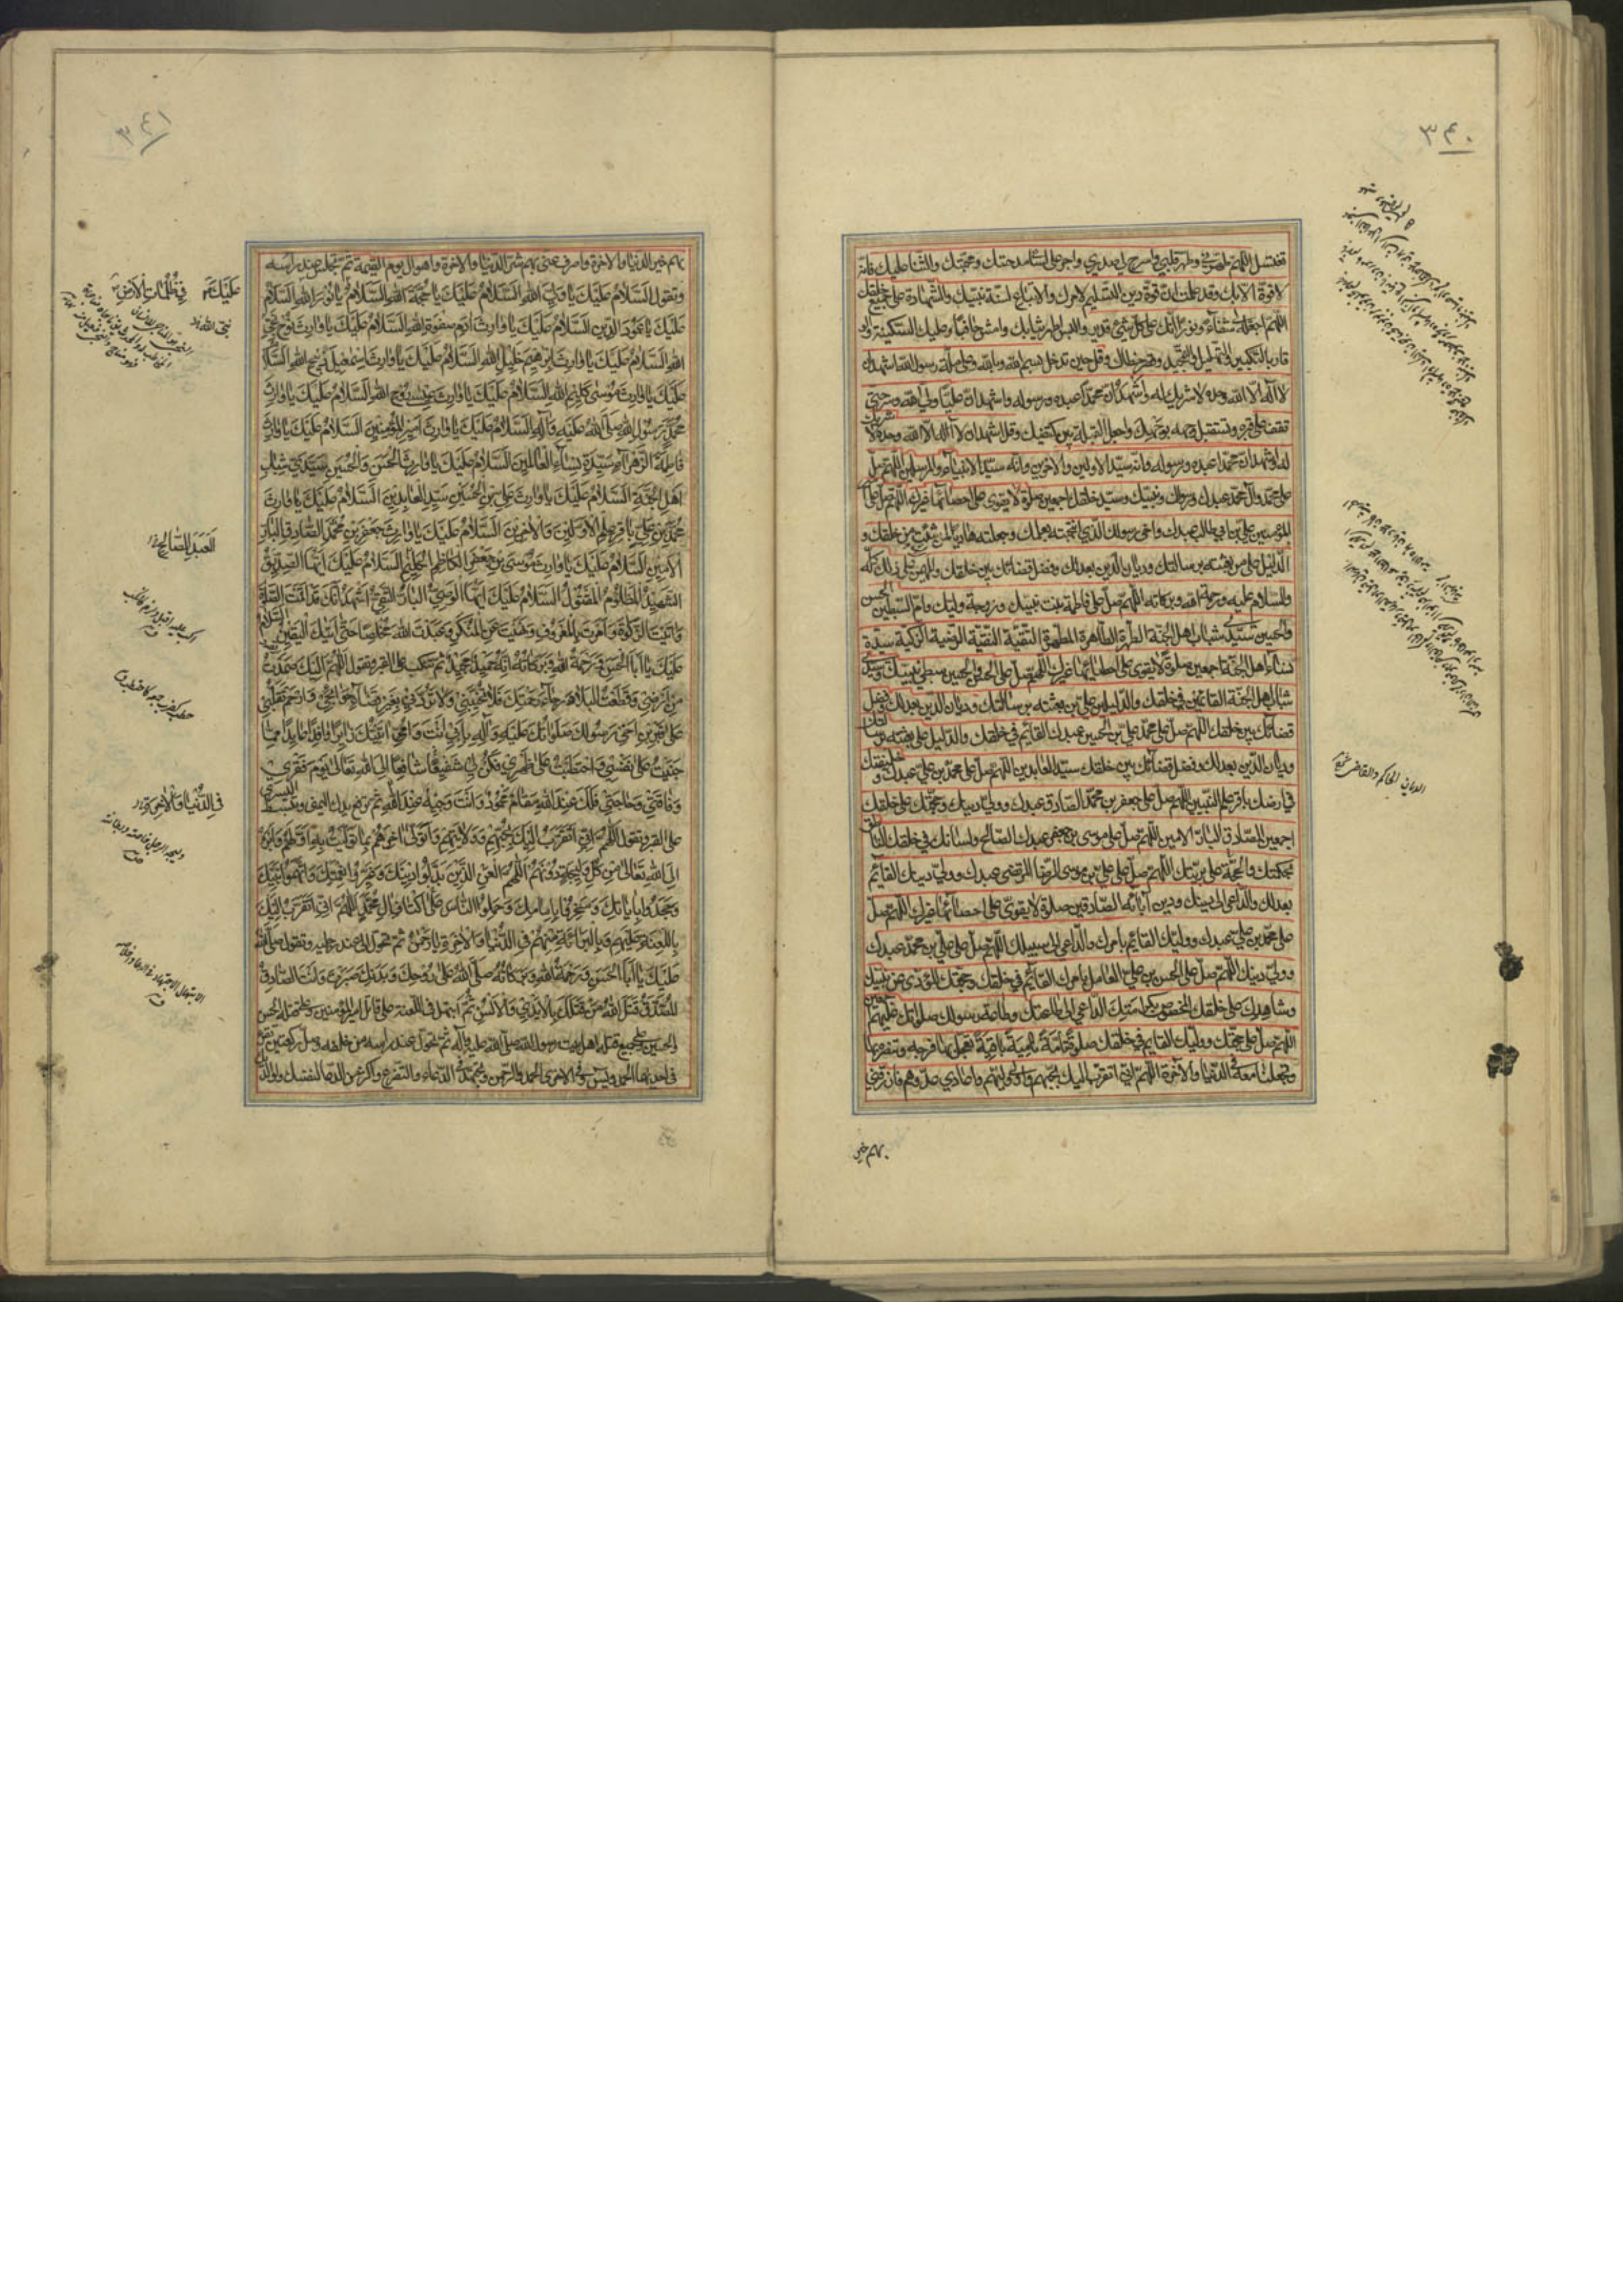 ٣٤٠
تغتسل اللهم طهرني وطهر قلبي واشرح لي صدري واجر على لساني مدحتك ومحبتك والثناء عليك فانه
لا قوة الا بك وقد علمت ان قوة ديني التسليم لامرك والاتباع لسنة نبيك والشهادة على جميع خلقك
اللهم اجعله لي شفاء ونورا انك على كل شيء قدير والبس اطهر ثيابك وامش حافيا وعليك السكينة والو
قار بالتكبير والتهليل والتمجيد وقصر خطاك وقل حين تدخل بسم الله وبالله وعلى ملة رسول الله اشهد ان
لا اله الا الله وحده لا شريك له واشهد ان محمدا عبده ورسوله واشهد ان عليا ولي الله وسر حتى
تقف على قبره وتستقبل وجهه بوجهك واجعل القبلة بين كتفيك وقل اشهد ان لا اله الا الله وحده لا شريك
له واشهد ان محمدا عبده ورسوله وانه سيد الاولين والاخرين وانه سيد الانبياء والمرسلين اللهم صل
على محمد وآل محمد عبدك ورسولك ونبيك وسيد خلقك اجمعين صلوة لا يقوى على احصائها غيرك اللهم صل على
امير المؤمنين علي بن ابي طالب عبدك واخي رسولك الذي انتجبته بعلمك وجعلته هاديا لمن شئت من خلقك و
الدليل على من بعثته برسالاتك وديان الدين بعدلك وفصل قضائك بين خلقك والمهيمن على ذلك كله
والسلام عليه ورحمة الله وبركاته اللهم صل على فاطمة بنت نبيك وزوجة وليك وام السبطين الحسن
والحسين سيدي شباب اهل الجنة الطهرة الطاهرة المطهرة التقية النقية الرضية الزكية سيدة
نساء اهل الجنة اجمعين صلوة لا يقوى على احصائها غيرك اللهم صل على الحسن والحسين سبطي نبيك وسيدي
شباب اهل الجنة القائمين في خلقك والدليلين على من بعثته برسالاتك وديان الدين بعدلك وفصل
قضائك بين خلقك اللهم صل على محمد علي بن الحسين عبدك القائم في خلقك والدليل على من بعثته برسالاتك
وديان الدين بعدلك وفصل قضائك بين خلقك سيد العابدين اللهم صل على محمد بن علي عبدك وخليفتك
في ارضك باقر علم النبيين اللهم صل على جعفر بن محمد الصادق عبدك وولي دينك وحجتك على خلقك
اجمعين الصادق البار الامين اللهم صل على موسى بن جعفر عبدك الصالح ولسانك في خلقك الناطق
بحكمتك والحجة على بريتك اللهم صل على علي بن موسى الرضا المرتضى عبدك وولي دينك القائم
بعدلك والداعي الى دينك ودين آبائه الصادقين صلوة لا يقوى على احصائها غيرك اللهم صل
على محمد بن علي عبدك ووليك القائم بامرك والداعي الى سبيلك اللهم صل على علي بن محمد عبدك
وولي دينك اللهم صل على الحسن بن علي العامل بامرك القائم في خلقك وحجتك المؤدي عن نبيك
وشاهدك على خلقك المخصوص بكرامتك الداعي الى طاعتك وطاعة رسولك صلواتك عليهم اجمعين
اللهم صل على حجتك ووليك القايم في خلقك صلوة تامة نامية باقية تعجل بها فرجه وتنصره بها
وتجعلنا معه في الدنيا والاخرة اللهم اني اتقرب اليك بحبهم واوالي وليهم واعادي عدوهم فارزقني
بهم خير
الديان الحاكم والقاضي
٣٤١
بهم خير الدنيا والاخرة واصرف عني بهم شر الدنيا والاخرة واهوال يوم القيمة ثم تجلس عند راسه
وتقول السلام عليك يا ولي الله السلام عليك يا حجة الله السلام عليك يا نور الله السلام
عليك يا عمود الدين السلام عليك يا وارث آدم صفوة الله السلام عليك يا وارث نوح نجي
الله السلام عليك يا وارث ابرهيم خليل الله السلام عليك يا وارث اسمعيل ذبيح الله السلام
عليك يا وارث موسى كليم الله السلام عليك يا وارث عيسى روح الله السلام عليك يا وارث
محمد رسول الله صلى الله عليه وآله السلام عليك يا وارث امير المؤمنين السلام عليك يا وارث
فاطمة الزهراء سيدة نساء العالمين السلام عليك يا وارث الحسن والحسين سيدي شباب
اهل الجنة السلام عليك يا وارث علي بن الحسين سيد العابدين السلام عليك يا وارث
محمد بن علي باقر علم الاولين والاخرين السلام عليك يا وارث جعفر بن محمد الصادق البار
الامين السلام عليك يا وارث موسى بن جعفر الكاظم الحليم السلام عليك ايها الصديق
الشهيد المظلوم المقتول السلام عليك ايها الوصي البار التقي اشهد انك قد اقمت الصلوة
وآتيت الزكوة وامرت بالمعروف ونهيت عن المنكر وعبدت الله مخلصا حتى اتيك اليقين السلام
عليك يا ابا الحسن ورحمة الله وبركاته انه حميد مجيد ثم تنكب على القبر وتقول اللهم اليك صمدت
من ارضي وقطعت البلاد رجاء رحمتك فلا تخيبني ولا تردني بغير قضاء حوائجي وارحم تقلبي
على قبر ابن اخي رسولك صلواتك عليه وآله بابي انت وامي اتيتك زايرا وافدا عايذا مما
جنيت على نفسي واحتطبت على ظهري فكن لي شفيعا شافعا الى الله تعالى يوم فقري
وفاقتي وحاجتي فلك عند الله مقام محمود وانت وجيه عند الله ثم ترفع يدك اليمنى وتبسط اليسرى
على القبر وتقول اللهم اني اتقرب اليك بحبهم وبولايتهم واتولى آخرهم بما توليت به اولهم وابرء
الى الله تعالى من كل وليجة دونهم اللهم العن الذين بدلوا دينك وغيروا نعمتك واتهموا نبيك
وجحدوا باياتك وسخروا بامامك وحملوا الناس على اكتاف آل محمد اللهم اني اتقرب اليك
باللعنة عليهم وبالبرائة منهم في الدنيا والاخرة يا رحمن ثم تحول الى عند رجليه وتقول صلى الله
عليك يا ابا الحسن ورحمة الله وبركاته صلى الله على روحك وبدنك صبرت وانت الصادق
المصدق قتل الله من قتلك بالايدي والالسن ثم ابتهل في اللعنة على قاتل امير المؤمنين وعلى قتلة الحسن
والحسين وعلى جميع قتلة اهل بيت رسول الله صلى الله عليه وآله ثم تحول عند راسه من خلفه وصل ركعتين تقرء
في احديهما الحمد ويس وفي الاخرى الحمد والرحمن وتجتهد في الدعاء والتضرع واكثر من الدعاء لنفسك ولوالديك
عليك
في ظلمات الارض
نجي الله
العبد الصالح
في الدنيا والآخرة